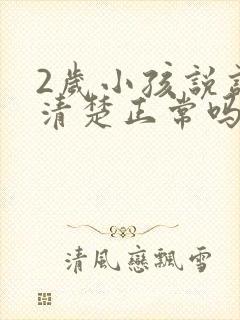 2歲小孩說
清楚正常嗎
清風戀飄雪